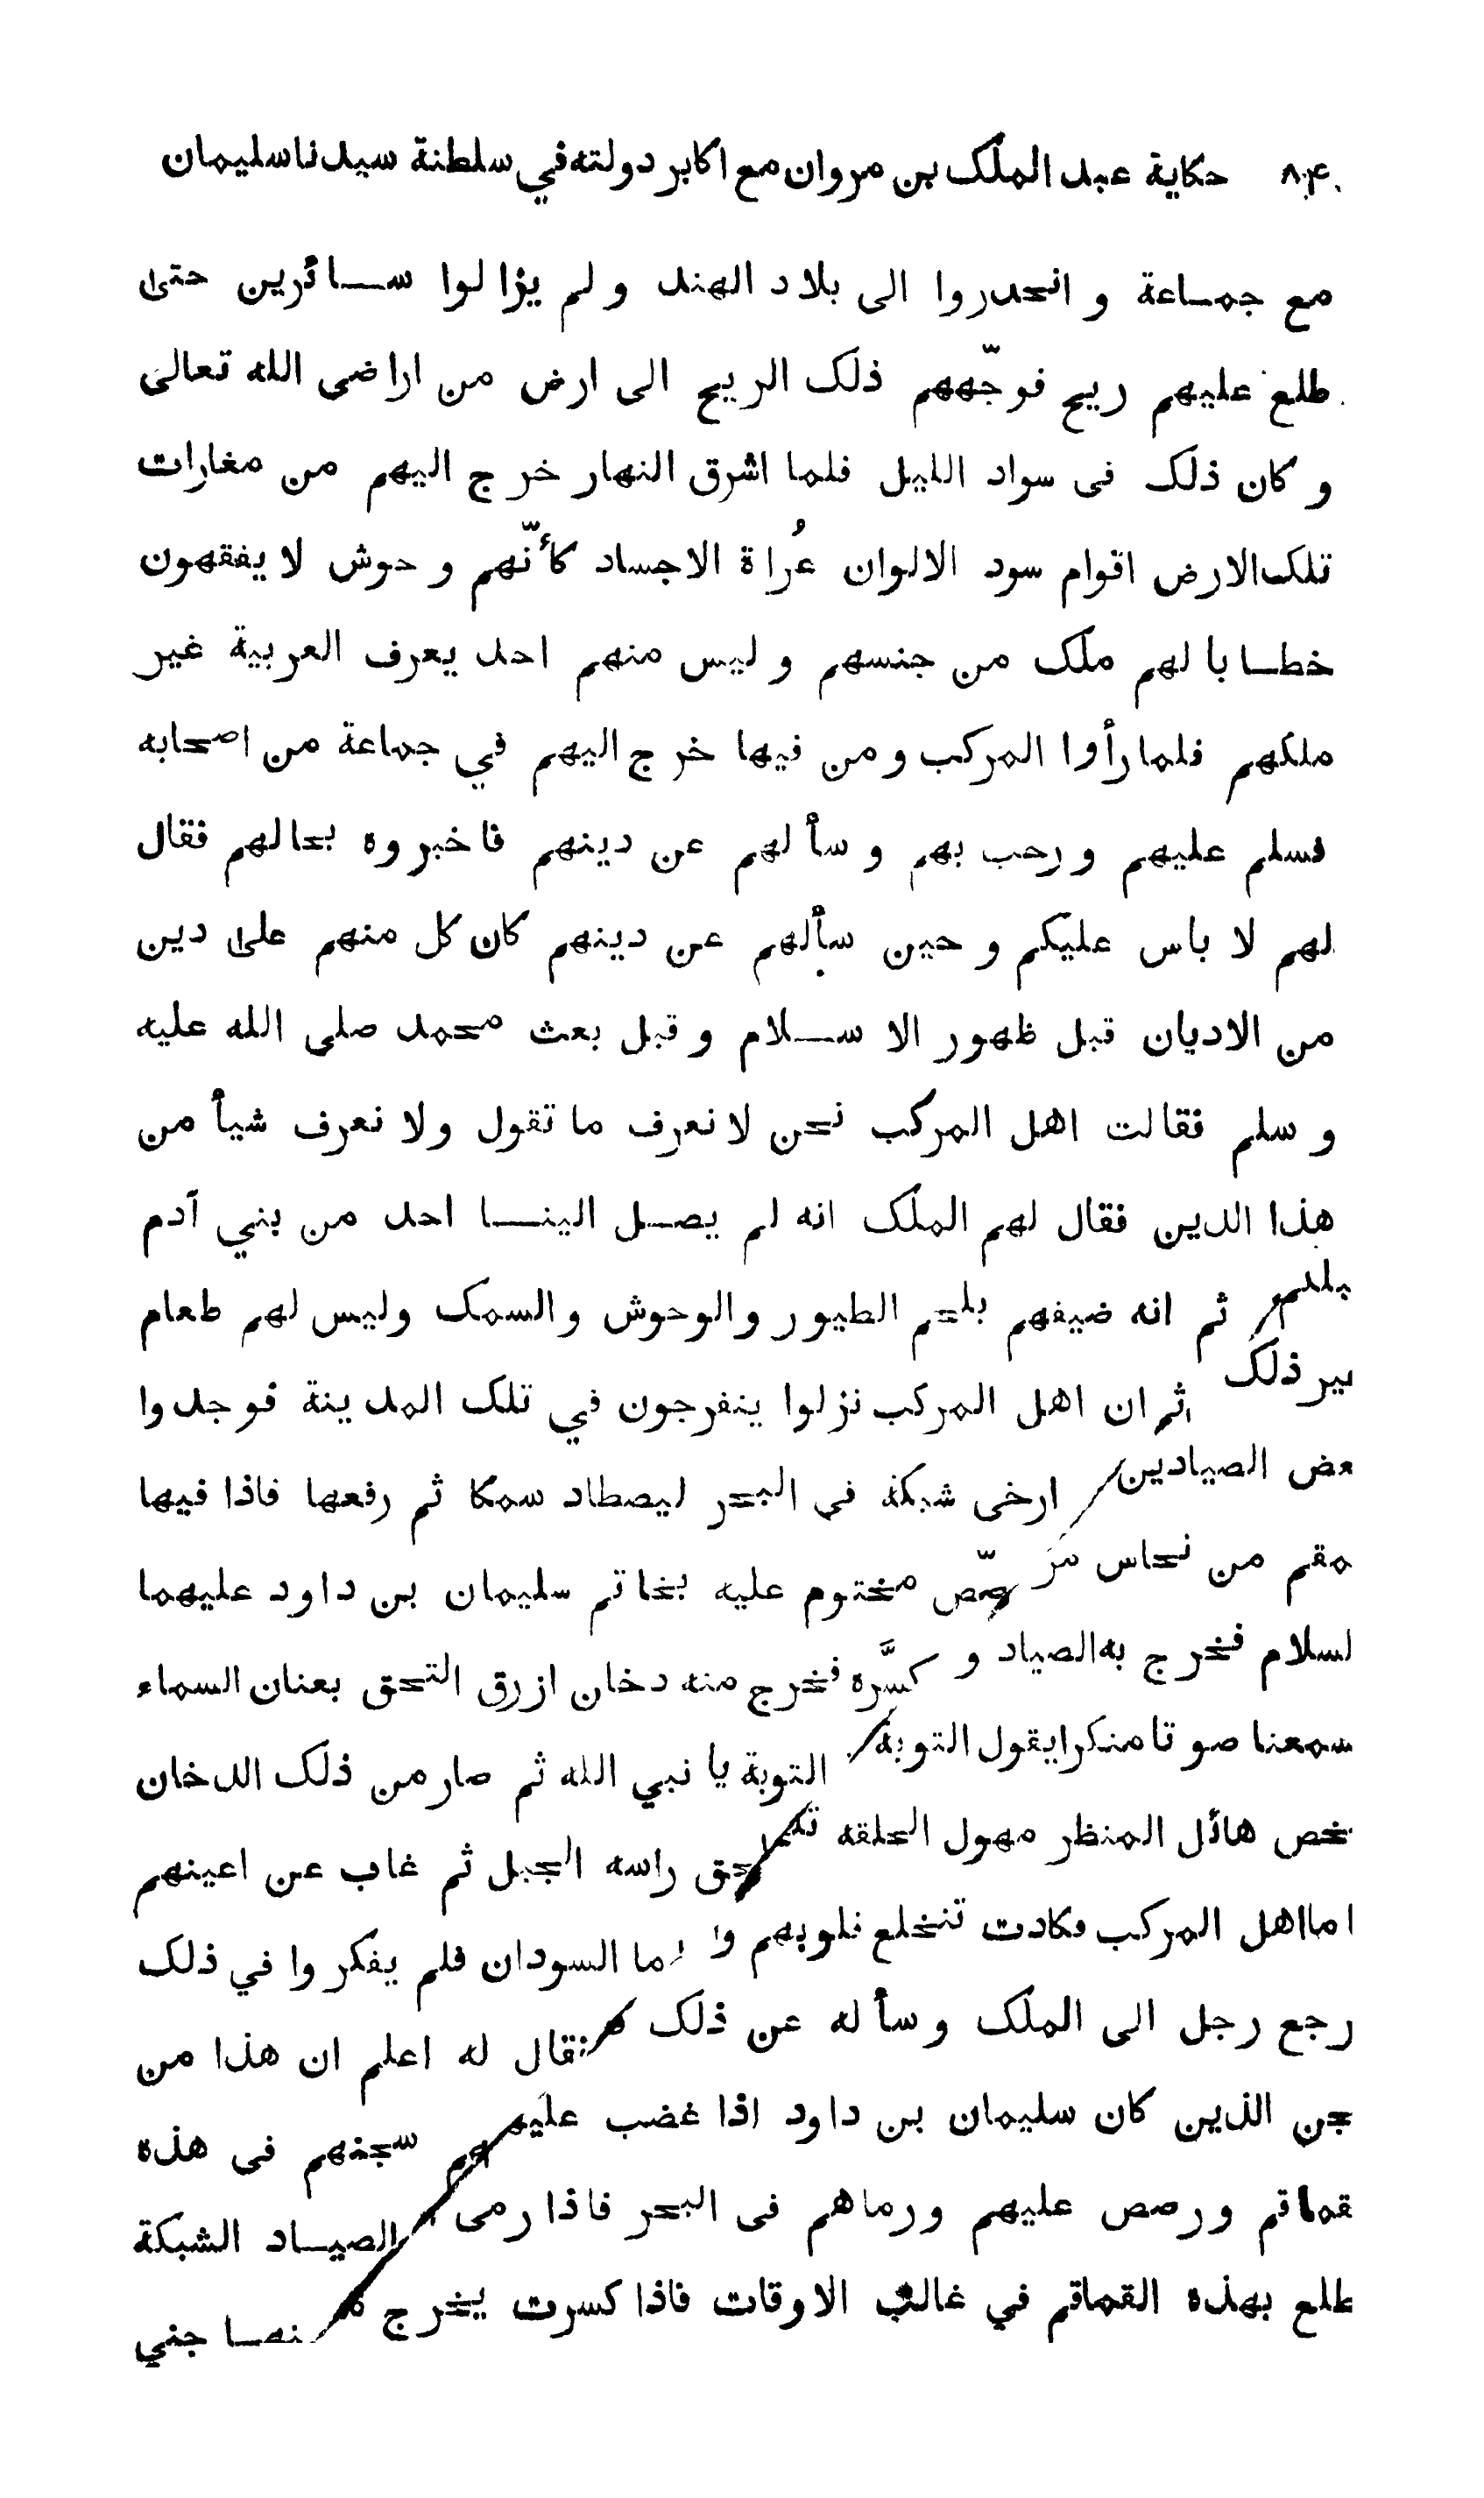 ٨٤٠ حكاية عبد الملك بن مروان مع اكابر دولته في سلطنة سيدنا سليمان
مع جمـاعة و انحدروا الى بلاد الهند و لم يزالوا سـائرين حتى
طلع عليهم ريح فوجّههم ذلك الريح الى ارض من اراضى الله تعالى
و كان ذلك فى سواد الليل فلما اشرق النهار خرج اليهم من مغارات
تلك الارض اقوام سود الالوان عُراة الاجساد كأنّهم وحوش لا يفقهون
خطـابا لهم ملك من جنسهم و ليس منهم احد يعرف العربية غير
ملكهم فلما رأوا المركب ومن فيها خرج اليهم في جماعة من اصحابه
فسلم عليهم و رحب بهم و سألهم عن دينهم فاخبروه بحالهم فقال
لهم لا باس عليكم و حين سألهم عن دينهم كان كل منهم على دين
من الاديان قبل ظهور الاسـلام و قبل بعث محمد صلى الله عليه
و سلم فقالت اهل المركب نحن لا نعرف ما تقول ولا نعرف شيأ من
هذا الدين فقال لهم الملك انه لم يصـل الينـا احد من بني آدم
ثم انه ضيفهم بلحم الطيور والوحوش والسمك وليس لهم طعام
ير ذلك ثم ان اهل المركب نزلوا يتفرجون في تلك المدينة فوجدوا
عض الصيادين ارخى شبكة فى البحر ليصطاد سمكا ثم رفعها فاذا فيها
مقم من نحاس مرصّص مختوم عليه بخاتم سليمان بن داود عليهما
لسلام فخرج به الصياد و كسَّره فخرج منه دخان ازرق التحق بعنان السماء
سمعنا صوتا منكرا يقول التوبة التوبة يا نبي الله ثم صار من ذلك الدخان
خص هائل المنظر مهول الخلقه تلحق راسه الجبل ثم غاب عن اعينهم
اما اهل المركب فكادت تنخلع قلوبهم و اما السودان فلم يفكروا في ذلك
رجع رجل الى الملك و سأله عن ذلك فقال له اعلم ان هذا من
جن الذين كان سليمان بن داود اذا غضب عليهم سجنهم فى هذه
قماقم ورصص عليهم ورماهم فى البحر فاذا رمى الصيـاد الشبكة
طلع بهذه القماقم في غالب الاوقات فاذا كسرت يخرج منهـا جني